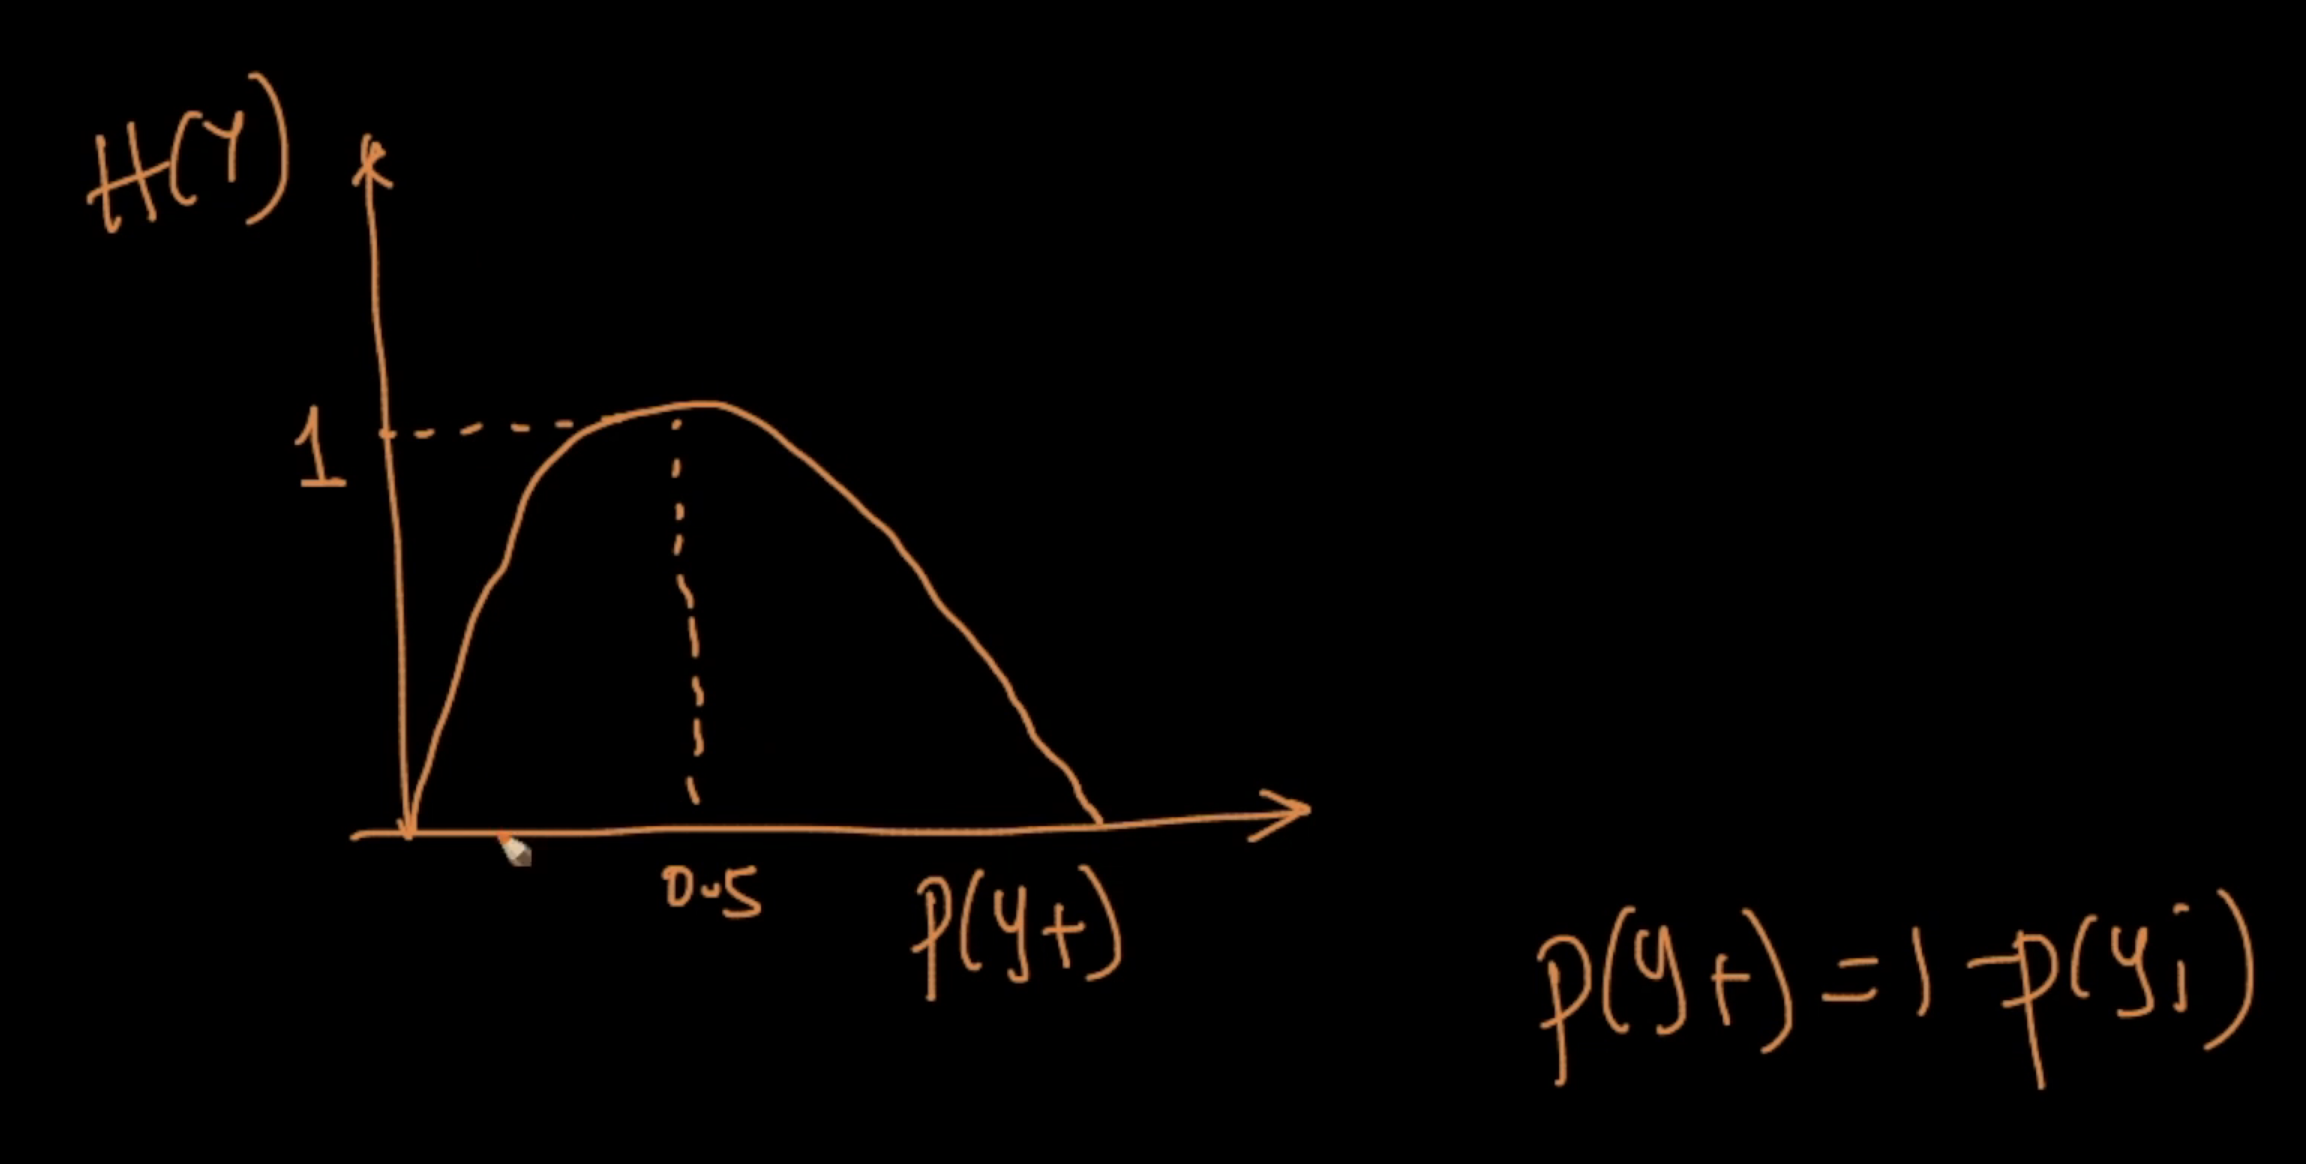 H(Y)
1
0.5
P(y+)
P(y+) = 1 - P(yj)